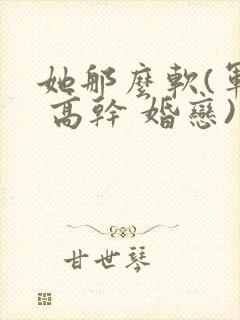 她那麼軟(軍
高幹 婚戀)
甘世琴